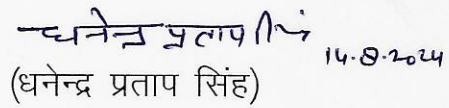 धनेन्द्र प्रताप सिंह
14.8.2024
(धनेन्द्र प्रताप सिंह)